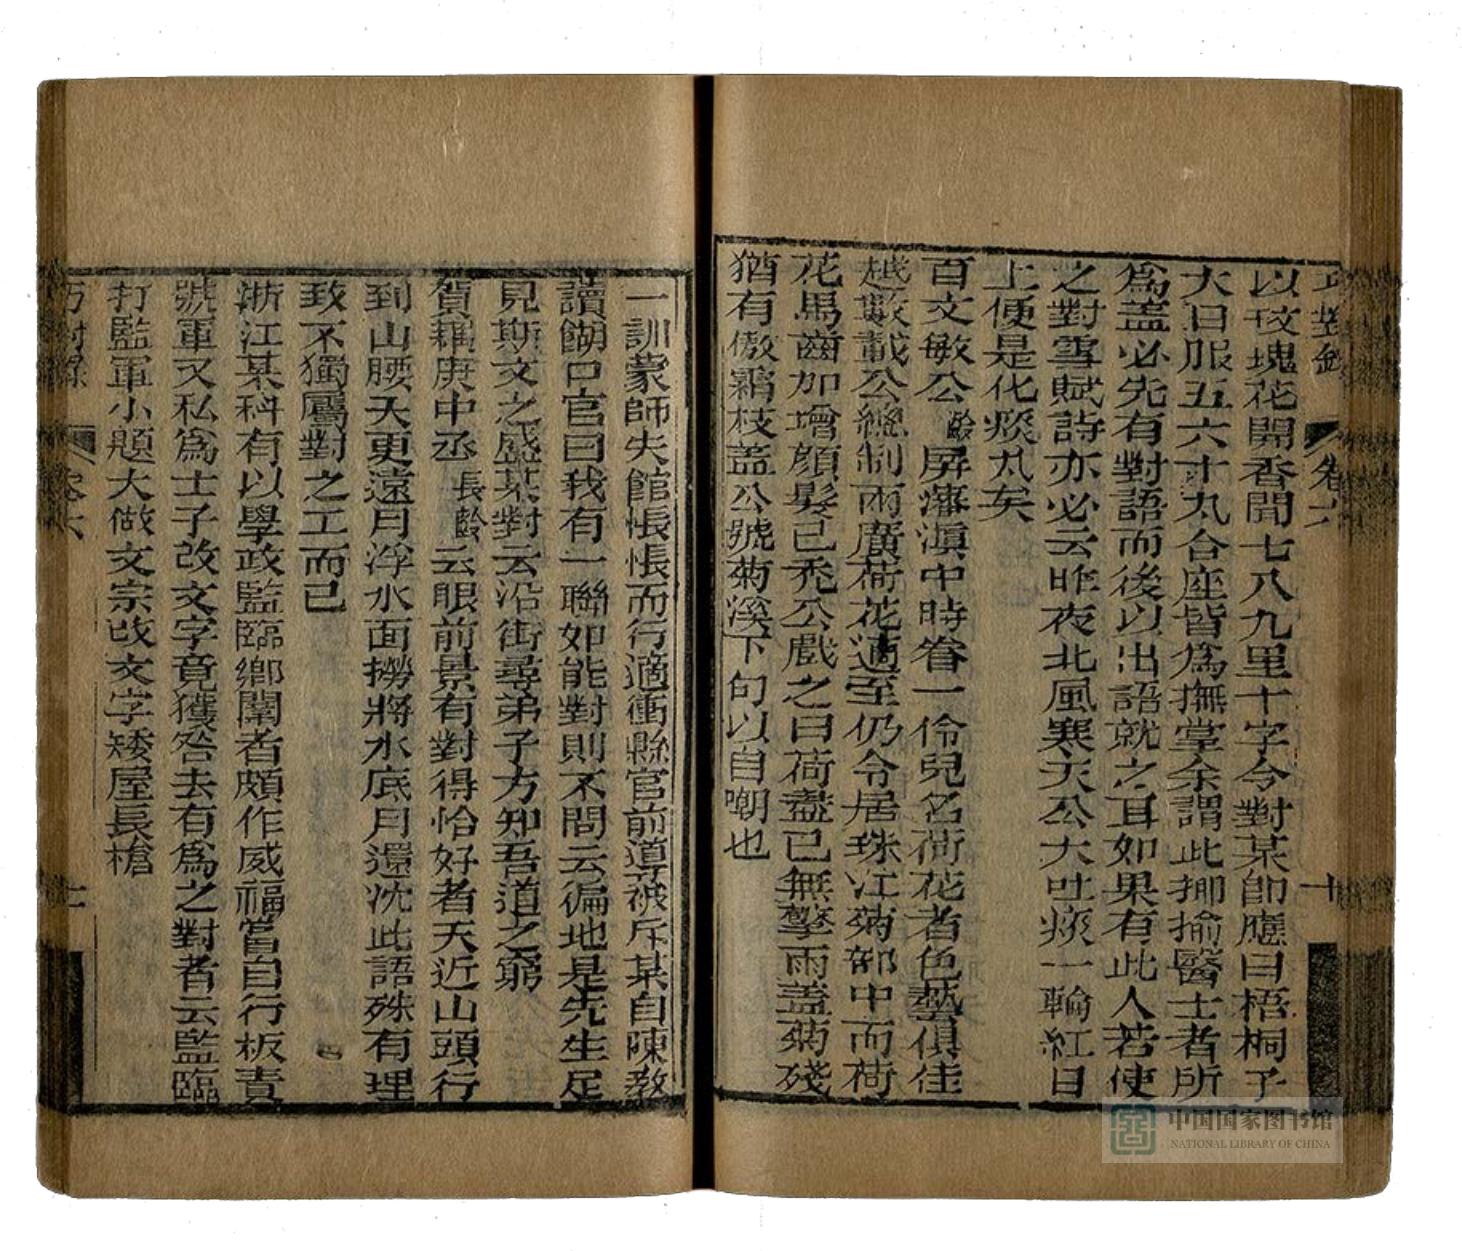 巧對錄 卷六 十
以玫瑰花開香聞七八九里十字令對某卽應曰梧桐子
大日服五六十丸合座皆爲撫掌余謂此揶揄醫士者所
爲蓋必先有對語而後以出語就之耳如果有此人若使
之對雪賦詩亦必云昨夜北風寒天公大吐痰一輪紅日
上便是化痰丸矣
百文敏公齡屏藩滇中時眷一伶兒名荷花者色藝俱佳
越數載公總制兩廣荷花適至仍令居珠江菊部中而荷
花馬齒加增顏髮已禿公戲之曰荷盡已無擎雨蓋菊殘
猶有傲霜枝蓋公號菊溪下句以自嘲也
一訓蒙師失館悵悵而行適衝縣官前導被斥某自陳教
讀餬口官曰我有一聯如能對則不問云徧地是先生足
見斯文之盛某對云沿街尋弟子方知吾道之窮
賀耦庚中丞長齡云眼前景有對得恰好者天近山頭行
到山腰天更遠月浮水面撈將水底月還沈此語殊有理
致不獨屬對之工而已
浙江某科有以學政監臨鄉闈者頗作威福嘗自行板責
號軍又私爲士子改文字竟獲咎去有爲之對者云監臨
打監軍小題大做文宗改文字矮屋長槍
巧對錄 卷六